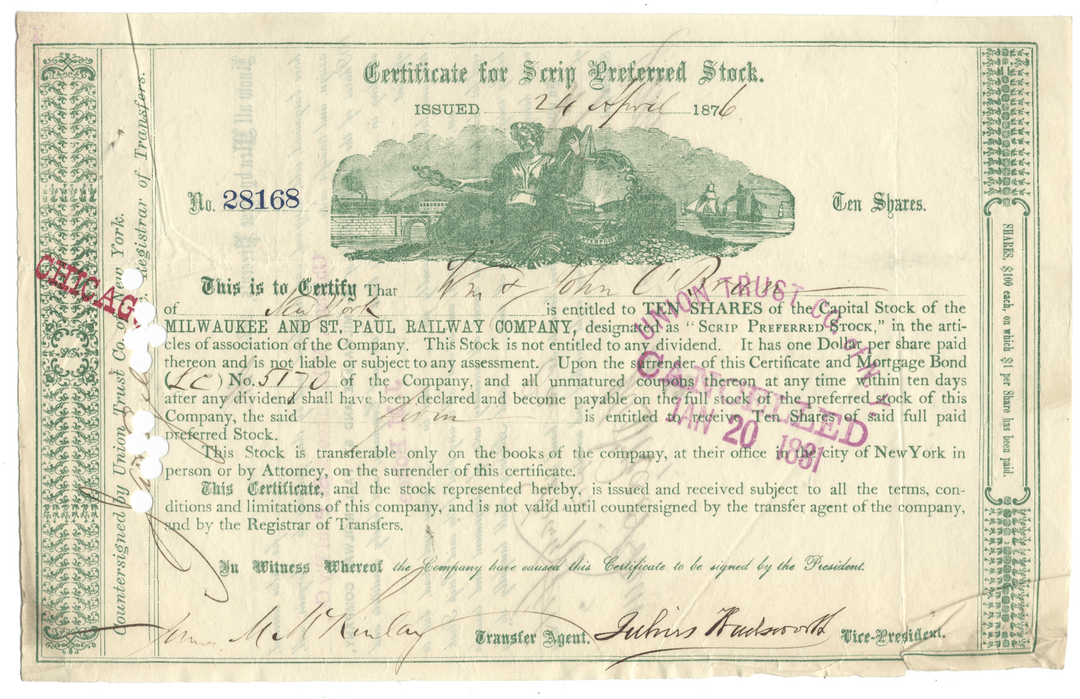 Certificate for Scrip Preferred Stock.
ISSUED 24 April 1876
No. 28168
Ten Shares.
This is to Certify That Wm & John O'Brien
of New York is entitled to TEN SHARES of the Capital Stock of the
MILWAUKEE AND ST. PAUL RAILWAY COMPANY, designated as "SCRIP PREFERRED STOCK," in the arti-
cles of association of the Company. This Stock is not entitled to any dividend. It has one Dollar per share paid
thereon and is not liable or subject to any assessment. Upon the surrender of this Certificate and Mortgage Bond
(LC) No. 5170 of the Company, and all unmatured coupons thereon at any time within ten days
after any dividend shall have been declared and become payable on the full stock of the preferred stock of this
Company, the said firm is entitled to receive Ten Shares of said full paid
preferred Stock.
This Stock is transferable only on the books of the company, at their office in the city of NewYork in
person or by Attorney, on the surrender of this certificate.
This Certificate, and the stock represented hereby, is issued and received subject to all the terms, con-
ditions and limitations of this company, and is not valid until countersigned by the transfer agent of the company,
and by the Registrar of Transfers.
In Witness Whereof the Company have caused this Certificate to be signed by the President.
James M. McKinlay Transfer Agent. Julius Wadsworth Vice-President.
Countersigned by Union Trust Co. of New York.
Registrar of Transfers.
SHARES, $100 each, on which $1 per Share has been paid.
CHICAG
UNION TRUST CO. OF N.Y.
CANCELLED
JAN 20 1881